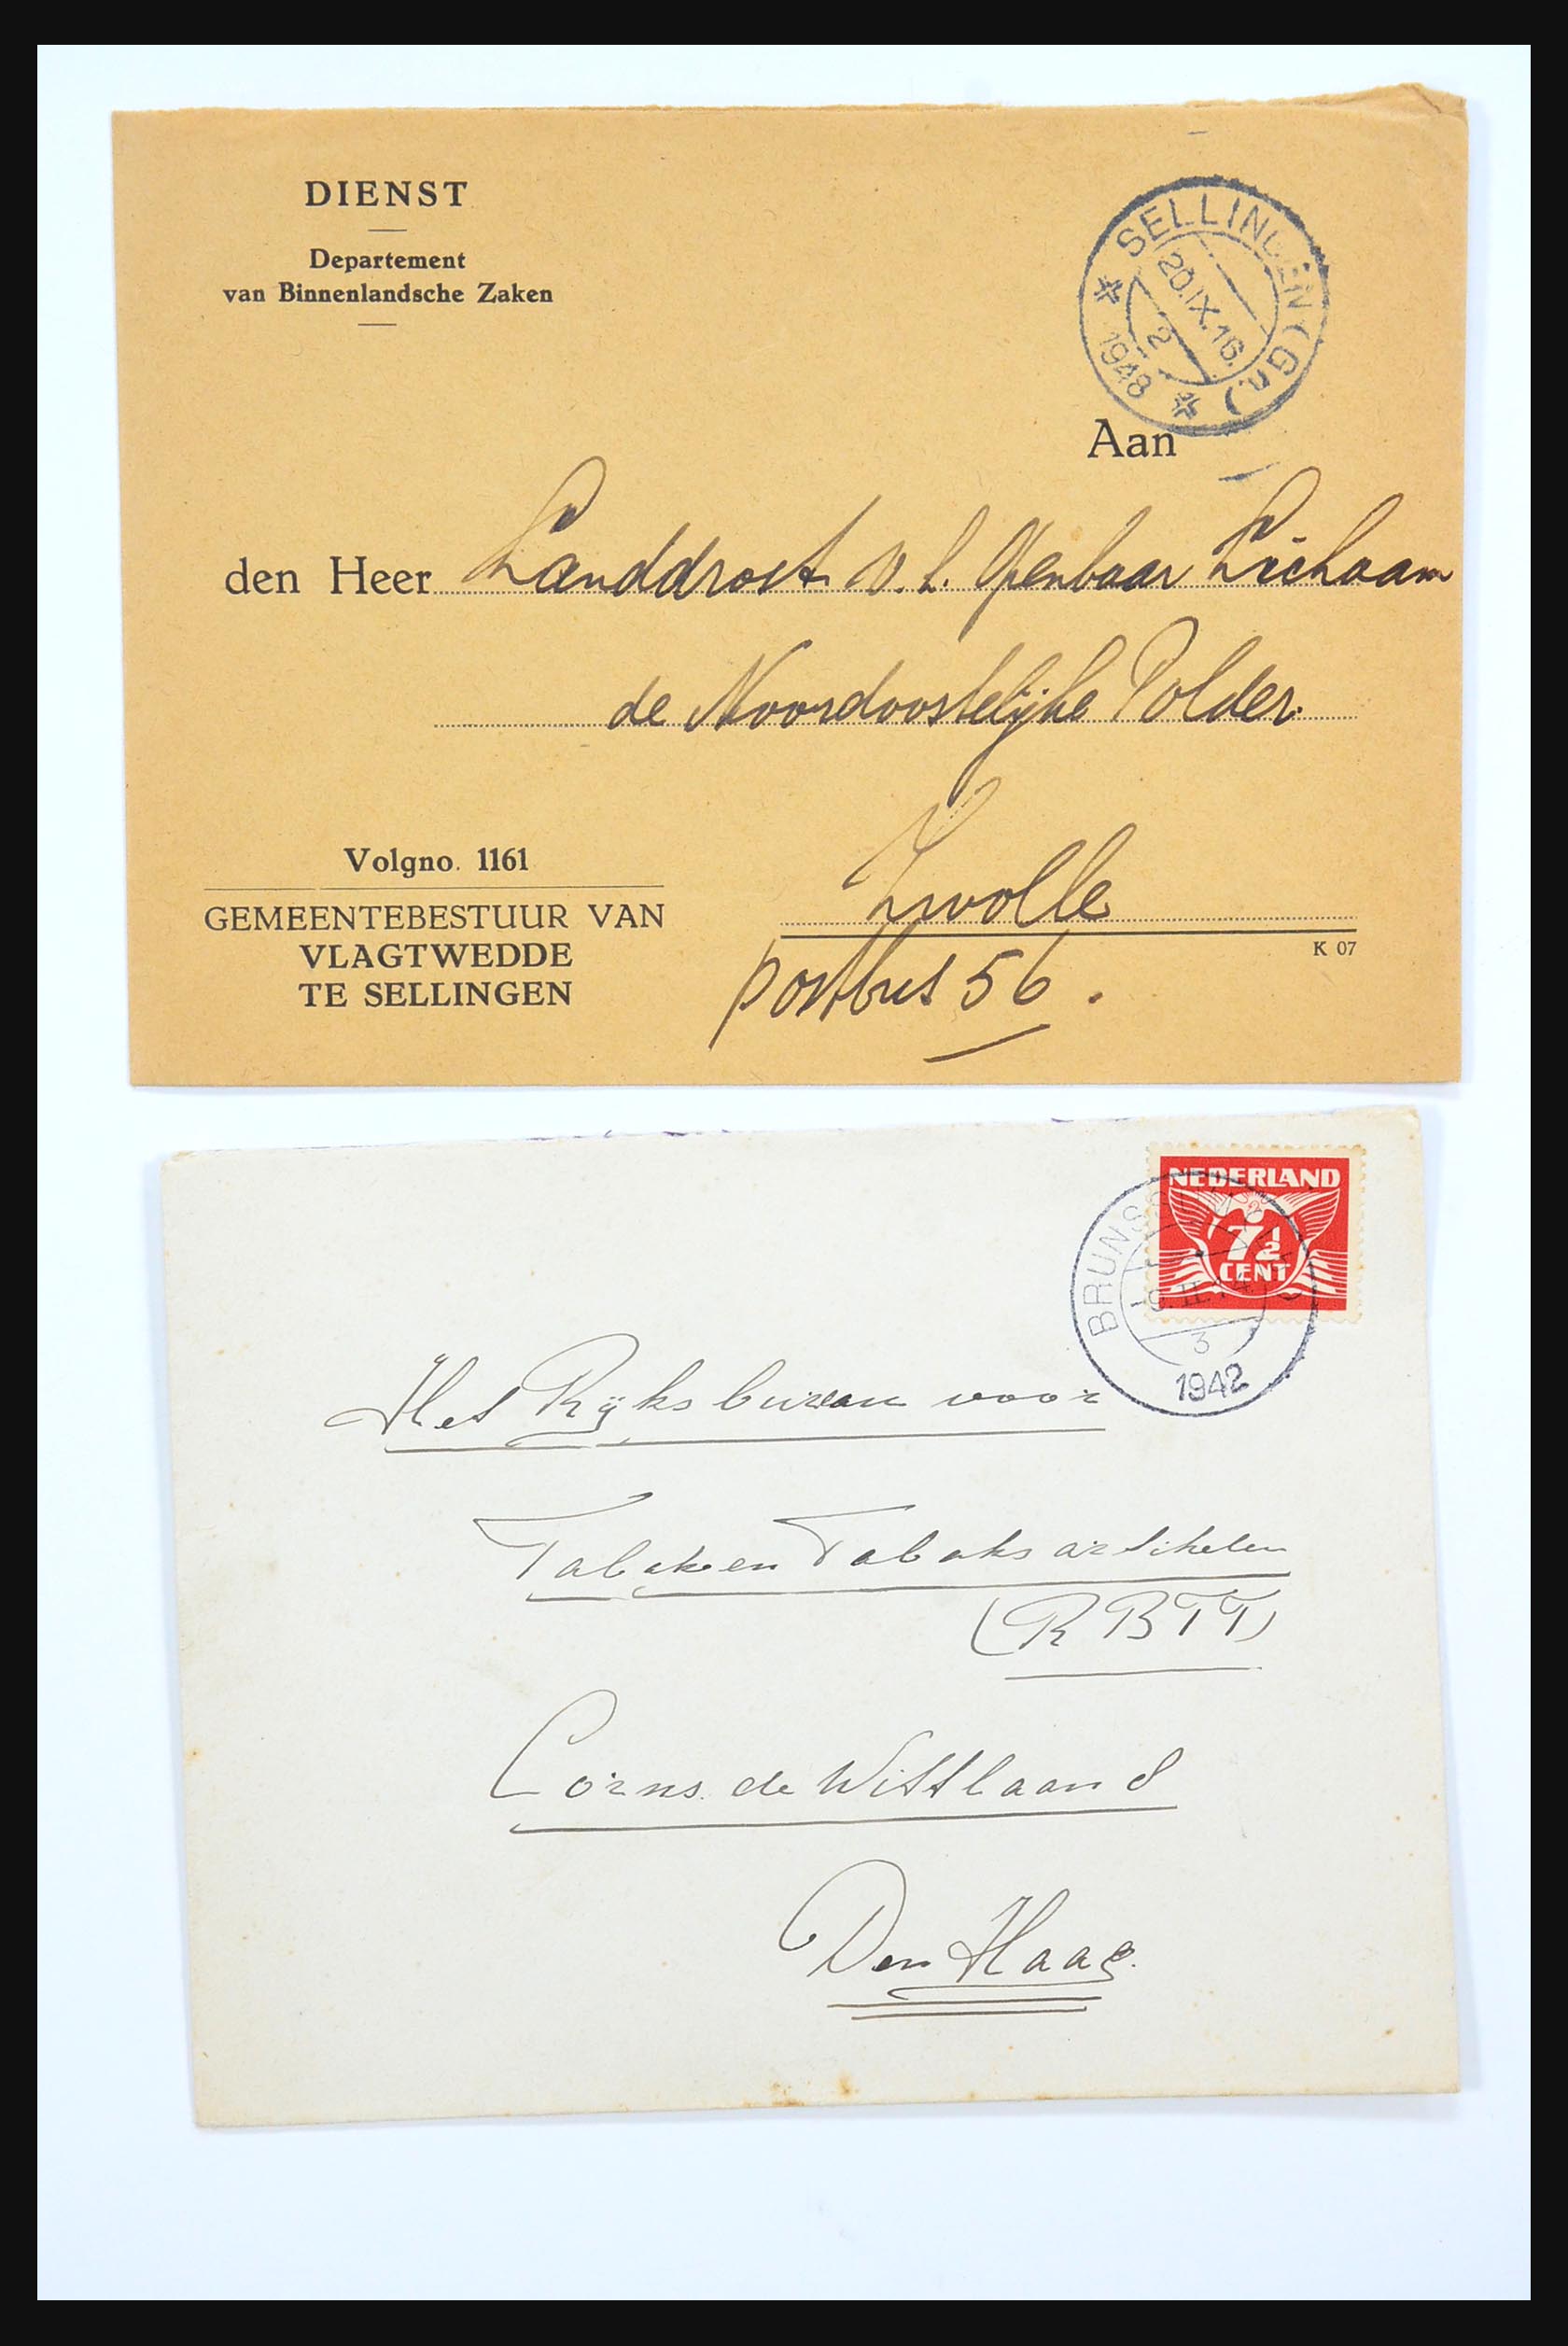 DIENST
Departement
van Binnenlandsche Zaken
SELLINGEN (Gr.)
20.IX.16.
2
1948
Aan
den Heer Landdrost v. h. Openbaar Lichaam
de Noordoostelijke Polder.
Zwolle
postbus 56.
K 07
Volgno. 1161
GEMEENTEBESTUUR VAN
VLAGTWEDDE
TE SELLINGEN
NEDERLAND
7½
CENT
3
1942
Het Rijksbureau voor
Tabak en Tabaksartikelen
(RBTT)
Corns. de Wittlaan 8
Den Haag.